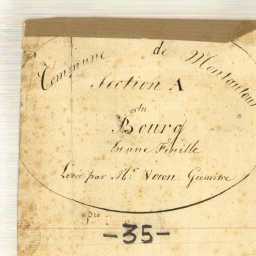 Commune de Montautour
Section A
du
Bourg
En une Feuille
Levée par Mr. Géomètre
-35-